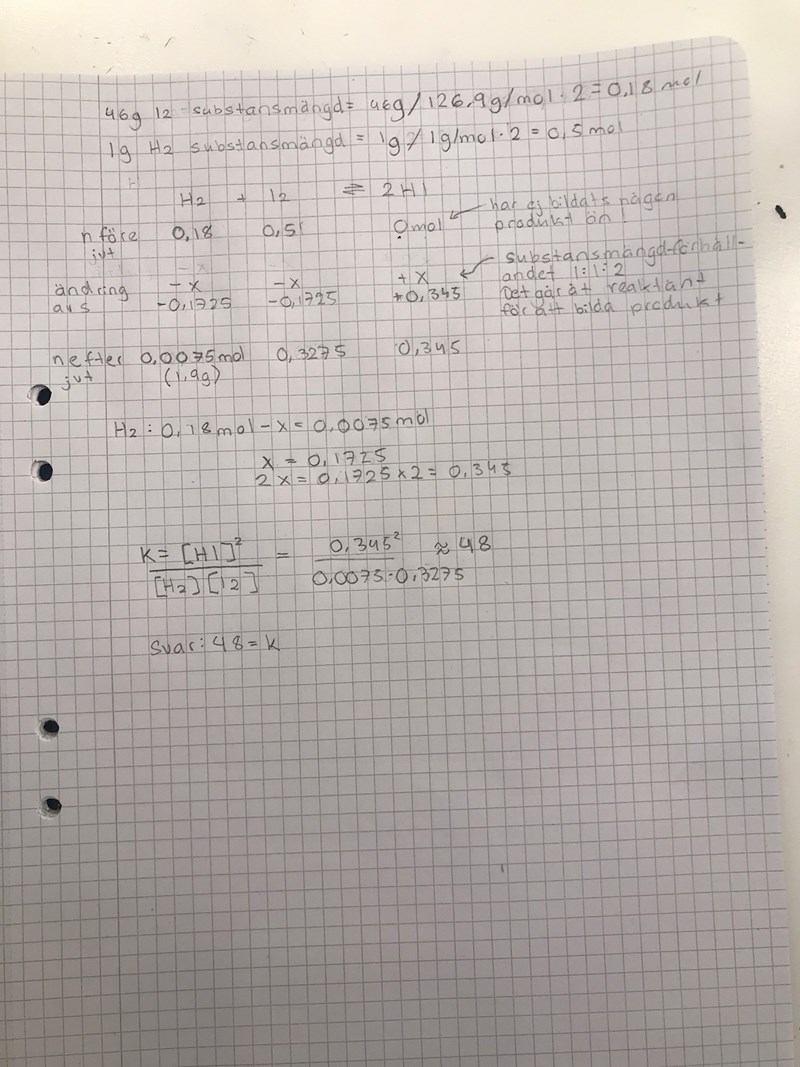 46g I2 substansmängd= 46g/126,9g/mol·2=0,18 mol
1g H2 substansmängd = 1g/1g/mol·2 = 0,5mol
H2 + I2 ⇌ 2HI
n före jvt 0,18 0,5 0mol ← har ej bildats någen produkt än!
ändring avs -x -x +x ← substansmängd-förhåll-
-0,1725 -0,1725 +0,345 andet 1:1:2
Det går åt reaktant
för att bilda produkt
n efter jvt 0,0075mol 0,3275 0,345
(1,9g)
H2: 0,18mol-x=0,0075mol
x = 0,1725
2x= 0,1725x2= 0,345
K= [HI]² / [H2][I2] = 0,345² / 0,0075·0,3275 ≈ 48
Svar: 48=K